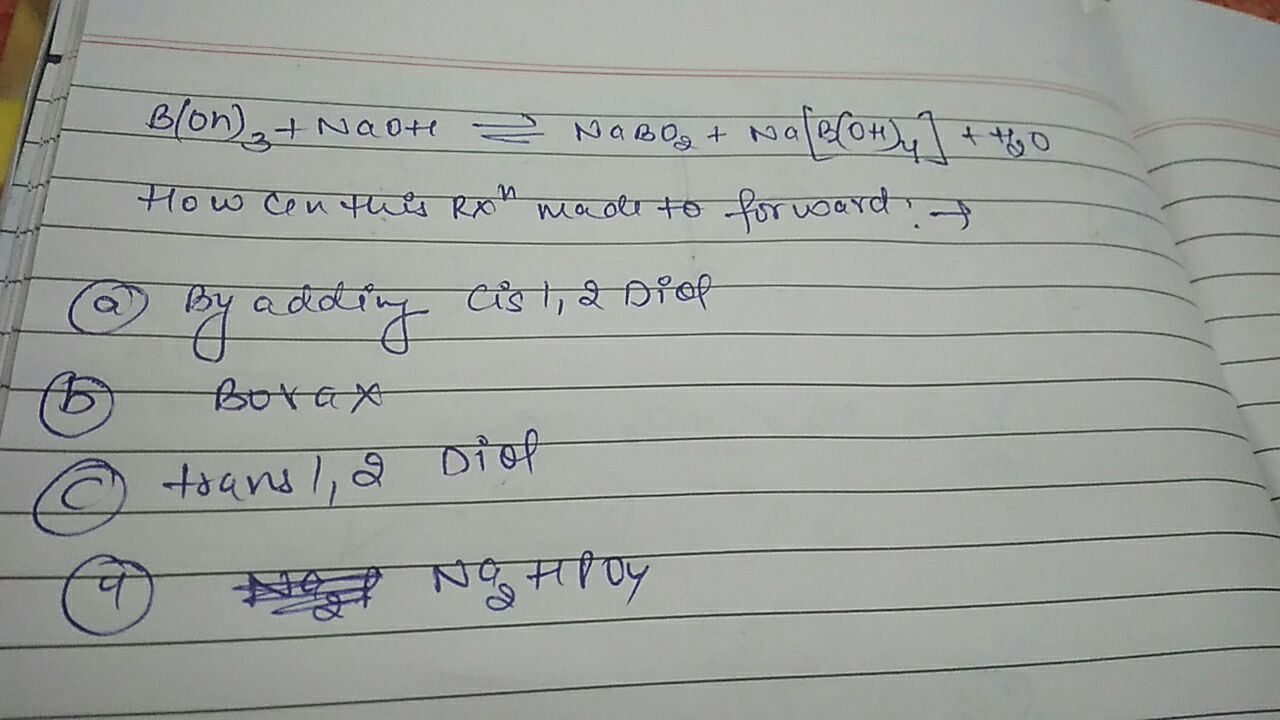 B(OH)3 + NaOH ⇌ NaBO2 + Na[B(OH)4] + H2O
How Can this Rxn made to forward : →
(a) By adding Cis 1, 2 Diol
(b) Borax
(c) trans 1, 2 Diol
(4) Na2HPO4